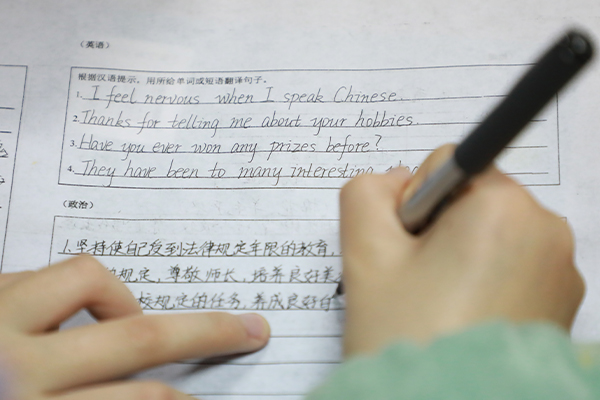 (英语)
根据汉语提示，用所给单词或短语翻译句子。
1. I feel nervous when I speak Chinese.
2. Thanks for telling me about your hobbies.
3. Have you ever won any prizes before?
4. They have been to many interesting
(政治)
1. 坚持使自己受到法律规定年限的教育,
规定, 尊敬师长, 培养良好
校规定的任务, 养成良好